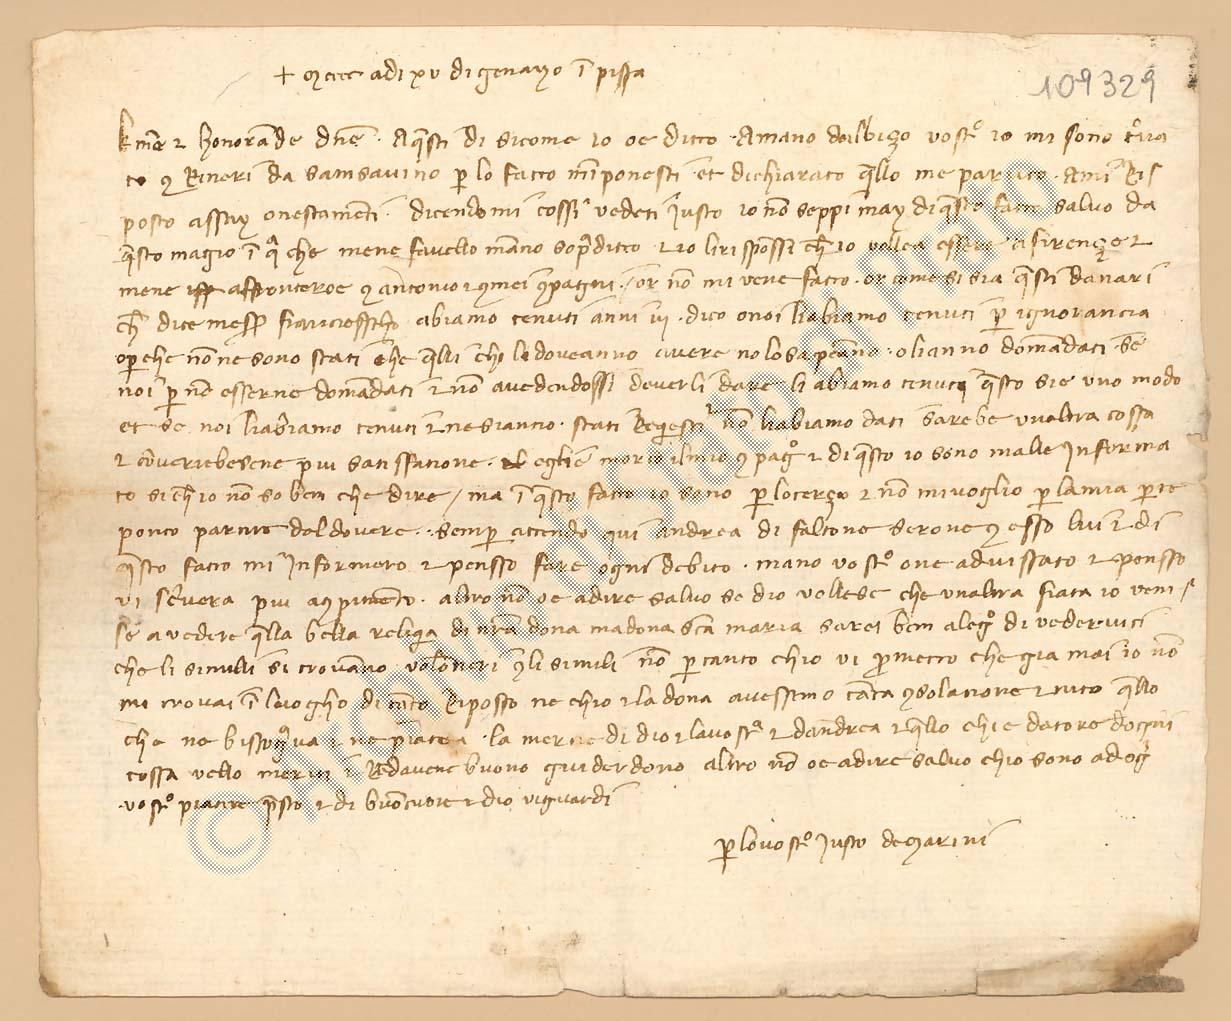 + mccc adi xv di genayo ĩ pissa
109329
k̃me & honorãde dñe · Aq̃sti di sicome io oe ditto · Amano dalbizo vostº io mi sono
to 9 Rineri da samsavino p̱ lo fatto m̃iponesti et dichiarato q̃llo me partito · Ami Ris
posto assay onestamenti · dicendomi cossi vedeti Justo io nõ seppi may di q̃sto fatto salvo da
q̃sto magio ĩ q̃ che mene favello mãno sop̃ditto & io li risspossi ch̃ io vollea essere a firenze &
mene affronteroe 9 antonio & 9 mei 9pagni · / or nõ mi vene fatto · or come si sia q̃sti danari
ch̃ dice mess̃ franciesscho abiamo tenuti anni iij · dico o noi liabiamo tenuti p̱ ignorancia
o p̱che none sono stati che q̃lli chi le doveanno avere no lo sapeãno · o lianno domãdati · se
noi p̱ nõ esserne domãdati & nõ avedendossi deverli dare li abiamo tenuti q̃sto sie uno modo
et se noi liabiamo tenuti & ne sianno · stati Reqiesti nõ liabiamo dati sarebe vnaltra cossa
& cõveriebesene piu satissfatione · eglie morto il mio 9pagº & di q̃sto io sono malle Informa
to si ch̃ io nõ so bem che dire / ma ĩ q̃sto fatto io sono p̱ lo terzo & nõ mi voglio p̱ la mia p̱te
ponto partire dal dovere · semp̱ attendo qui andrea di faltone serone 9 esso lui & di
q̃sto fatto mi Informero & pensso fare ogni debito · mano vostº one advissato & pensso
vi sc̃vera piu a 9pimento · altro nõ oe a dire salvo se dio vollese che vnaltra fiata io veni /
se a vedere q̃lla bella reliqia di nr̃a dona madona sc̃a maria sarei bem alegº di vedervici
che li simili si trovãno volõtieri 9 li simili nõ p̱tanto chio vi p̃metto che gia mai io nõ
mi trovai ĩ luogho di tãto Riposso ne chio & la dona avessimo tãta 9solatione & tuto q̃llo
che ne bissog̃va & ne piacea · la merce di dio & la vostª & dandrea & q̃llo chi e datore dogni
cossa vello meriti & Redavene buono guiderdono altro nõ oe a dire salvo chio sono ad og̃
vostº piacire p̃sto & di buõ cuore & dio vi guardi
p̱ lo vostº Justo de marini